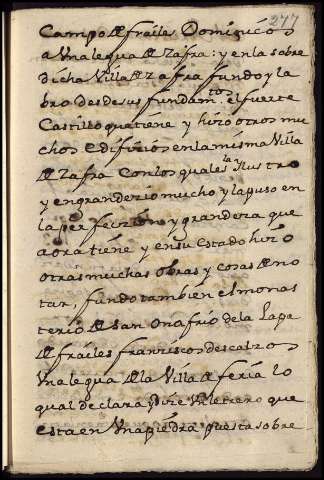 277
Campo de frailes Dominicos
a Una legua de Zafra: y en la sobre
dicha Villa de Zafra fundo y la
bro desde sus fundamtos. el fuerte
Castillo que tiene y hizo otros mu
chos edifiçios en la misma Villa
de Zafra con los quales la Ilustro
y engrandezio mucho y la puso en
la perfeçion y grandeza que
aora tiene y en su Estado hizo
otras muchas obras y cosas de no
tar, fundo tambien el monas
terio de San Onafrio de la Lapa
de frailes franciscos descalzos
Una legua de la Villa de feria lo
qual declara y dize Un letrero que
esta en Una piedra puesta sobre